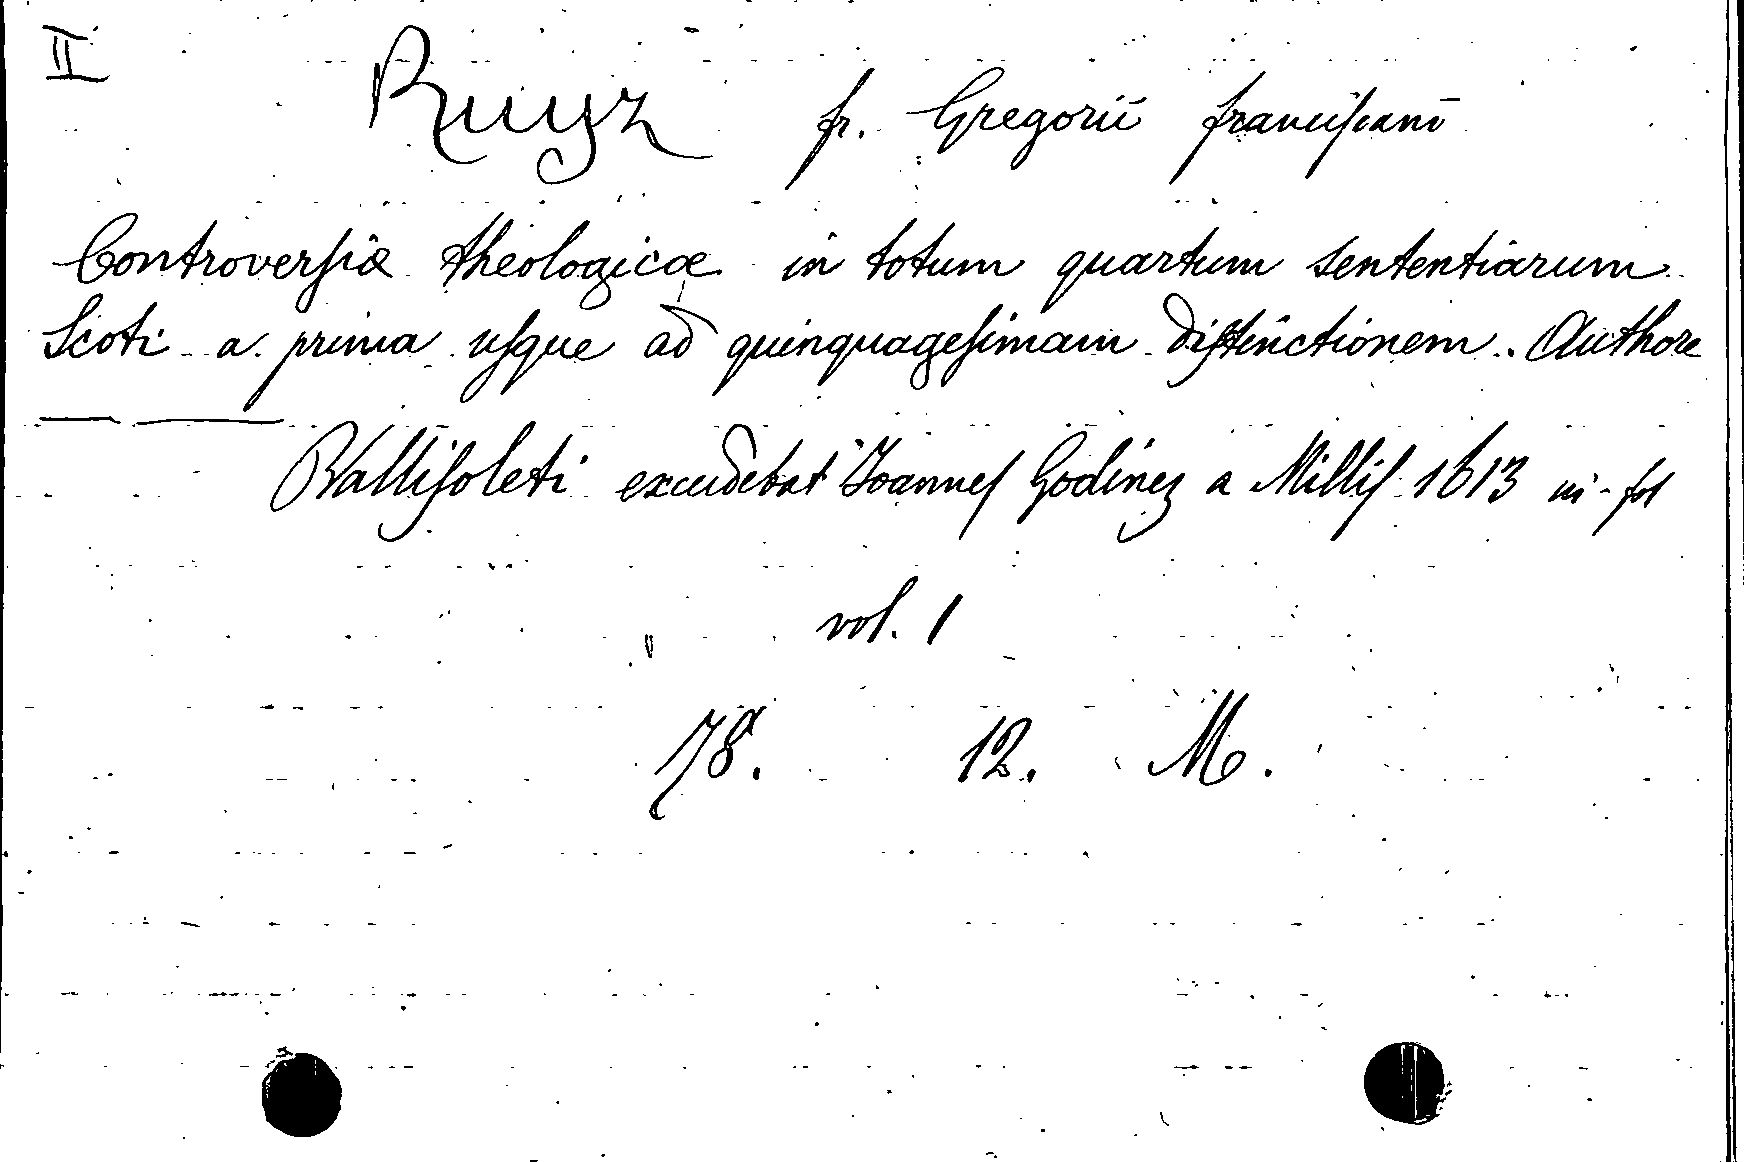 II
Ruyz fr. Gregorii franciscani
Controversiæ theologicæ in totum quartum sententiarum
Scoti a prima usque ad quinquagesimam distinctionem. Authore
Vallisoleti excudebat Joannes Godinez a Millis 1613 in-fol
vol. 1
78. 12. M.